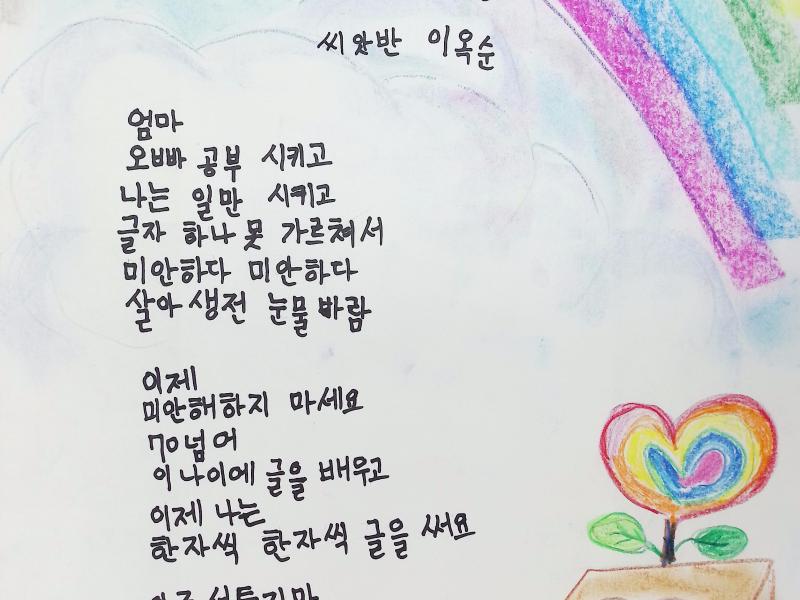 씨앗반 이옥순
엄마
오빠 공부 시키고
나는 일만 시키고
글자 하나 못 가르쳐서
미안하다 미안하다
살아 생전 눈물 바람
이제
미안해하지 마세요
70넘어
이 나이에 글을 배우고
이제 나는
한자씩 한자씩 글을 써요